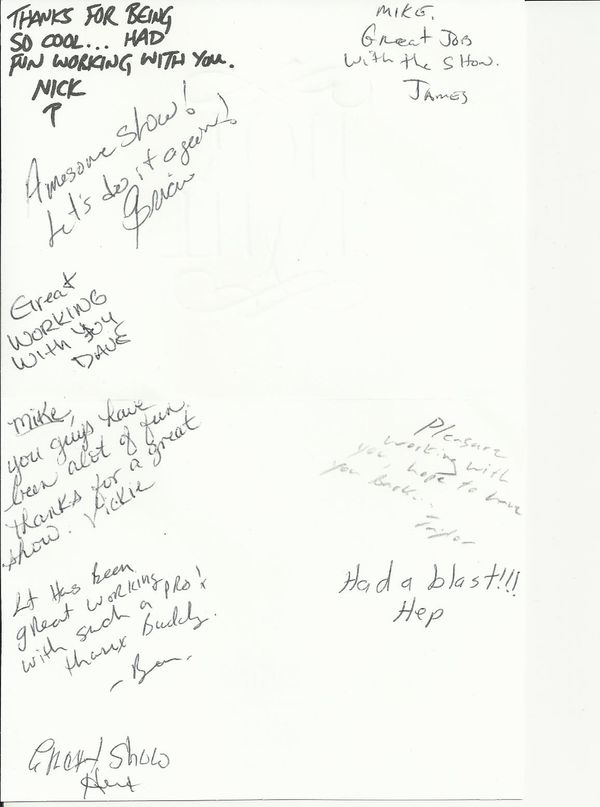 THANKS FOR BEING
SO COOL... HAD
FUN WORKING WITH YOU.
NICK
MIKE,
Great Job
With the Show.
James
Awesome show!
Let's do it again!
Brian
Great
WORKING
WITH YOU
DAVE
Mike,
you guys have
been alot of fun
thanks for a great
show. Vickie
Pleasure
working with
you, hope to have
you back...
Taylor
It Has been
great working
with such a pro!
thanx Buddy.
- Ben -
Had a blast!!!
Hep
Great Show